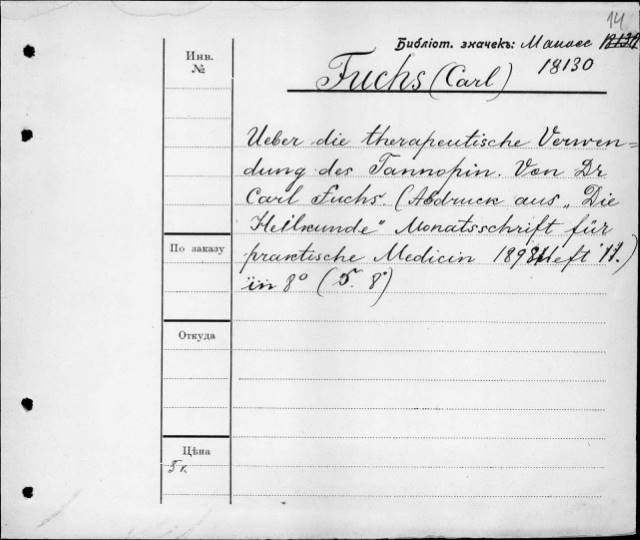 14
Библіот. значекъ: Манасс
18130
Инв.
№
Fuchs (Carl)
Ueber die therapeutische Verwen=
dung des Tannopin. Von Dr
Carl Fuchs. (Abdruck aus „Die
Heilkunde" Monatsschrift für
praktische Medicin 1898 Heft 11.)
in 8° (5. 8°)
По заказу
Откуда
Цѣна
5 к.